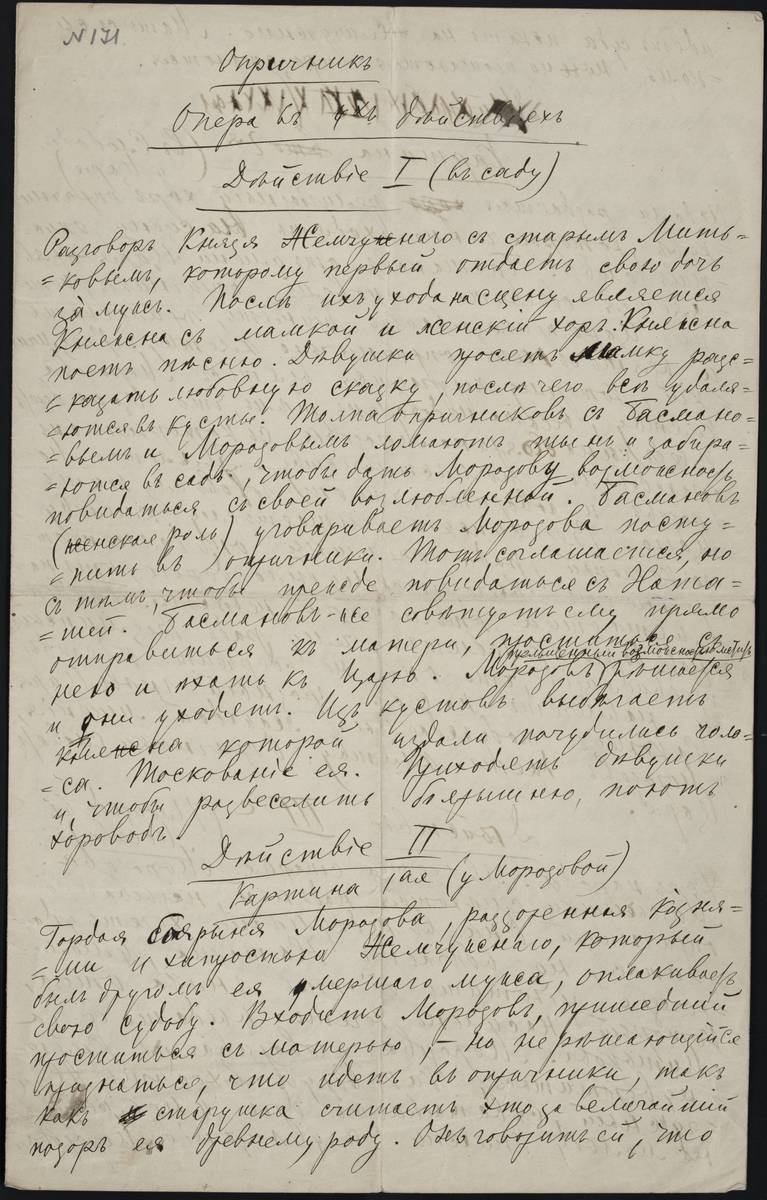 № 171
Опричникъ
Опера въ 4хъ дѣйствіяхъ
Дѣйствіе I (въ саду)
Разговоръ Князя Жемчужнаго съ старымъ Мить=
=ковымъ, которому первый отдаетъ свою дочь
за мужъ. Послѣ ихъ ухода на сцену является
Княжна съ мамкой и женскій хоръ. Княжна
поетъ пѣсню. Дѣвушки просятъ мамку разс=
=казать любовную сказку, послѣ чего всѣ удаля=
=ются въ кусты. Толпа опричниковъ съ Басмано=
=вымъ и Морозовымъ ломаютъ тынъ и забира=
=ются въ садъ, чтобы дать Морозову возможность
повидаться съ своей возлюбленной. Басмановъ
(женская роль) уговариваетъ Морозова посту=
=пить въ опричники. Тотъ соглашается, но
съ тѣмъ, чтобы прежде повидаться съ Ната=
=шей. Басмановъ-же совѣтуетъ ему прямо
отправиться къ матери, проститься съ
нею и ѣхать къ Царю. Морозовъ рѣшается
и они уходятъ. Изъ кустовъ выбѣгаетъ
княжна которой издали почудились голо=
=са. Тоскованіе ея. Приходятъ дѣвушки
и, чтобы развеселить боярышню, поютъ
хороводъ.
Дѣйствіе II
Картина 1ая (у Морозовой)
Гордая боярыня Морозова, разоренная козня=
=ми и хитростью Жемчужнаго, который
былъ другомъ ея умершаго мужа, оплакиваетъ
свою судьбу. Входитъ Морозовъ, пришедшій
проститься съ матерью, – но не рѣшающійся
признаться, что идетъ въ опричники, такъ
какъ старушка считаетъ это за величайшій
позоръ ея древнему роду. Онъ говоритъ ей, что